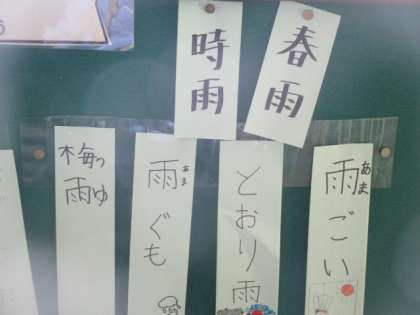 春雨
時雨
雨ごい
あま
とおり雨
雨ぐも
あま
梅雨
つゆ